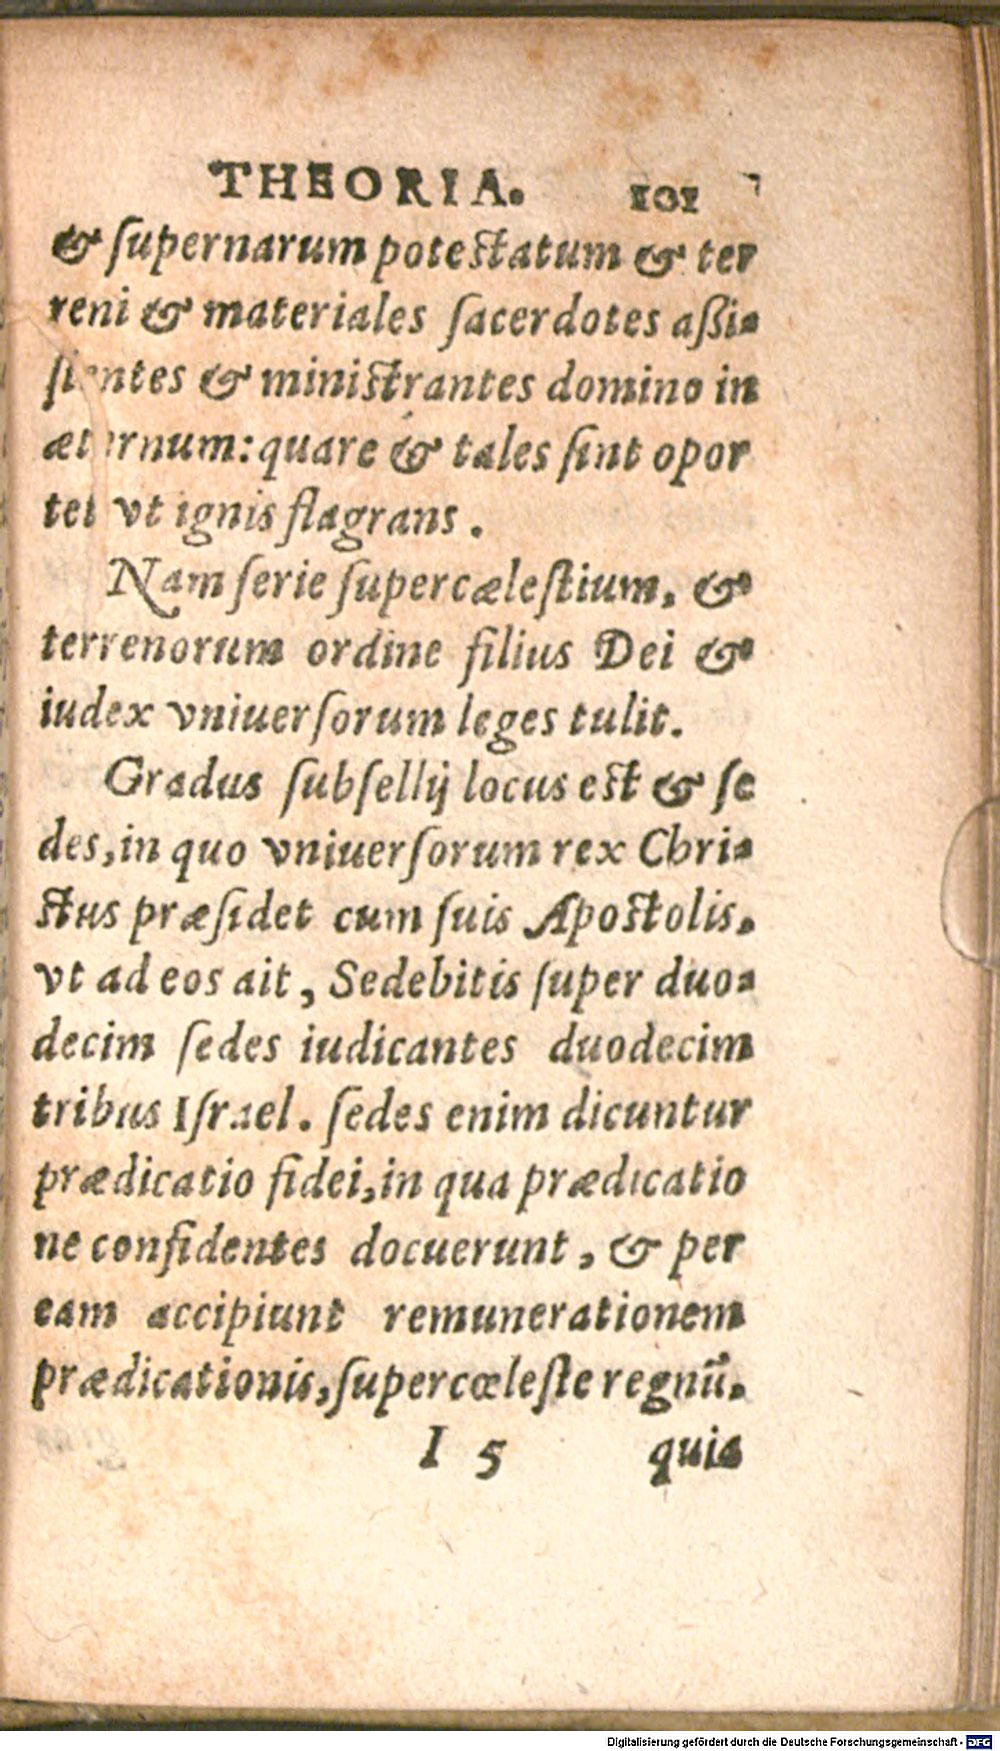 THEORIA. 101
& ſupernarum poteſtatum & ter
reni & materiales ſacerdotes aßi-
ſtentes & miniſtrantes domino in
æternum: quare & tales ſint opor
tet vt ignis flagrans.
Nam ſerie ſupercæleſtium, &
terrenorum ordine filius Dei &
iudex vniuerſorum leges tulit.
Gradus ſubſellij locus eſt & ſe
des, in quo vniuerſorum rex Chri-
ſtus præſidet cum ſuis Apoſtolis,
vt ad eos ait, Sedebitis ſuper duo-
decim ſedes iudicantes duodecim
tribus Iſrael. ſedes enim dicuntur
prædicatio fidei, in qua prædicatio
ne confidentes docuerunt, & per
eam accipiunt remunerationem
prædicationis, ſupercœleſte regnū.
I 5 quia
Digitalisierung gefördert durch die Deutsche Forschungsgemeinschaft - DFG